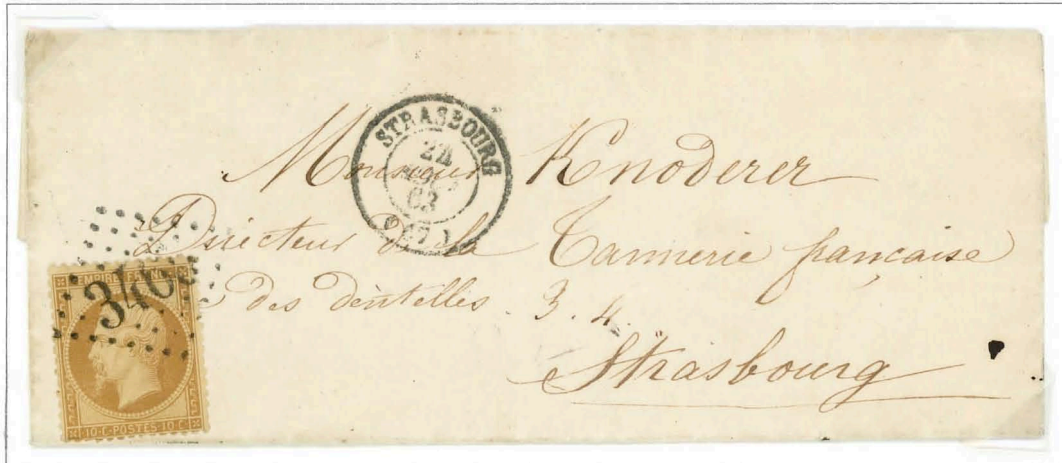 STRASBOURG
22
63
(67)
Monsieur Knoderer
Directeur de la Tannerie française
des dentelles. 3. 4.
Strasbourg
EMPIRE FRANC
346
10·C·POSTES·10·C